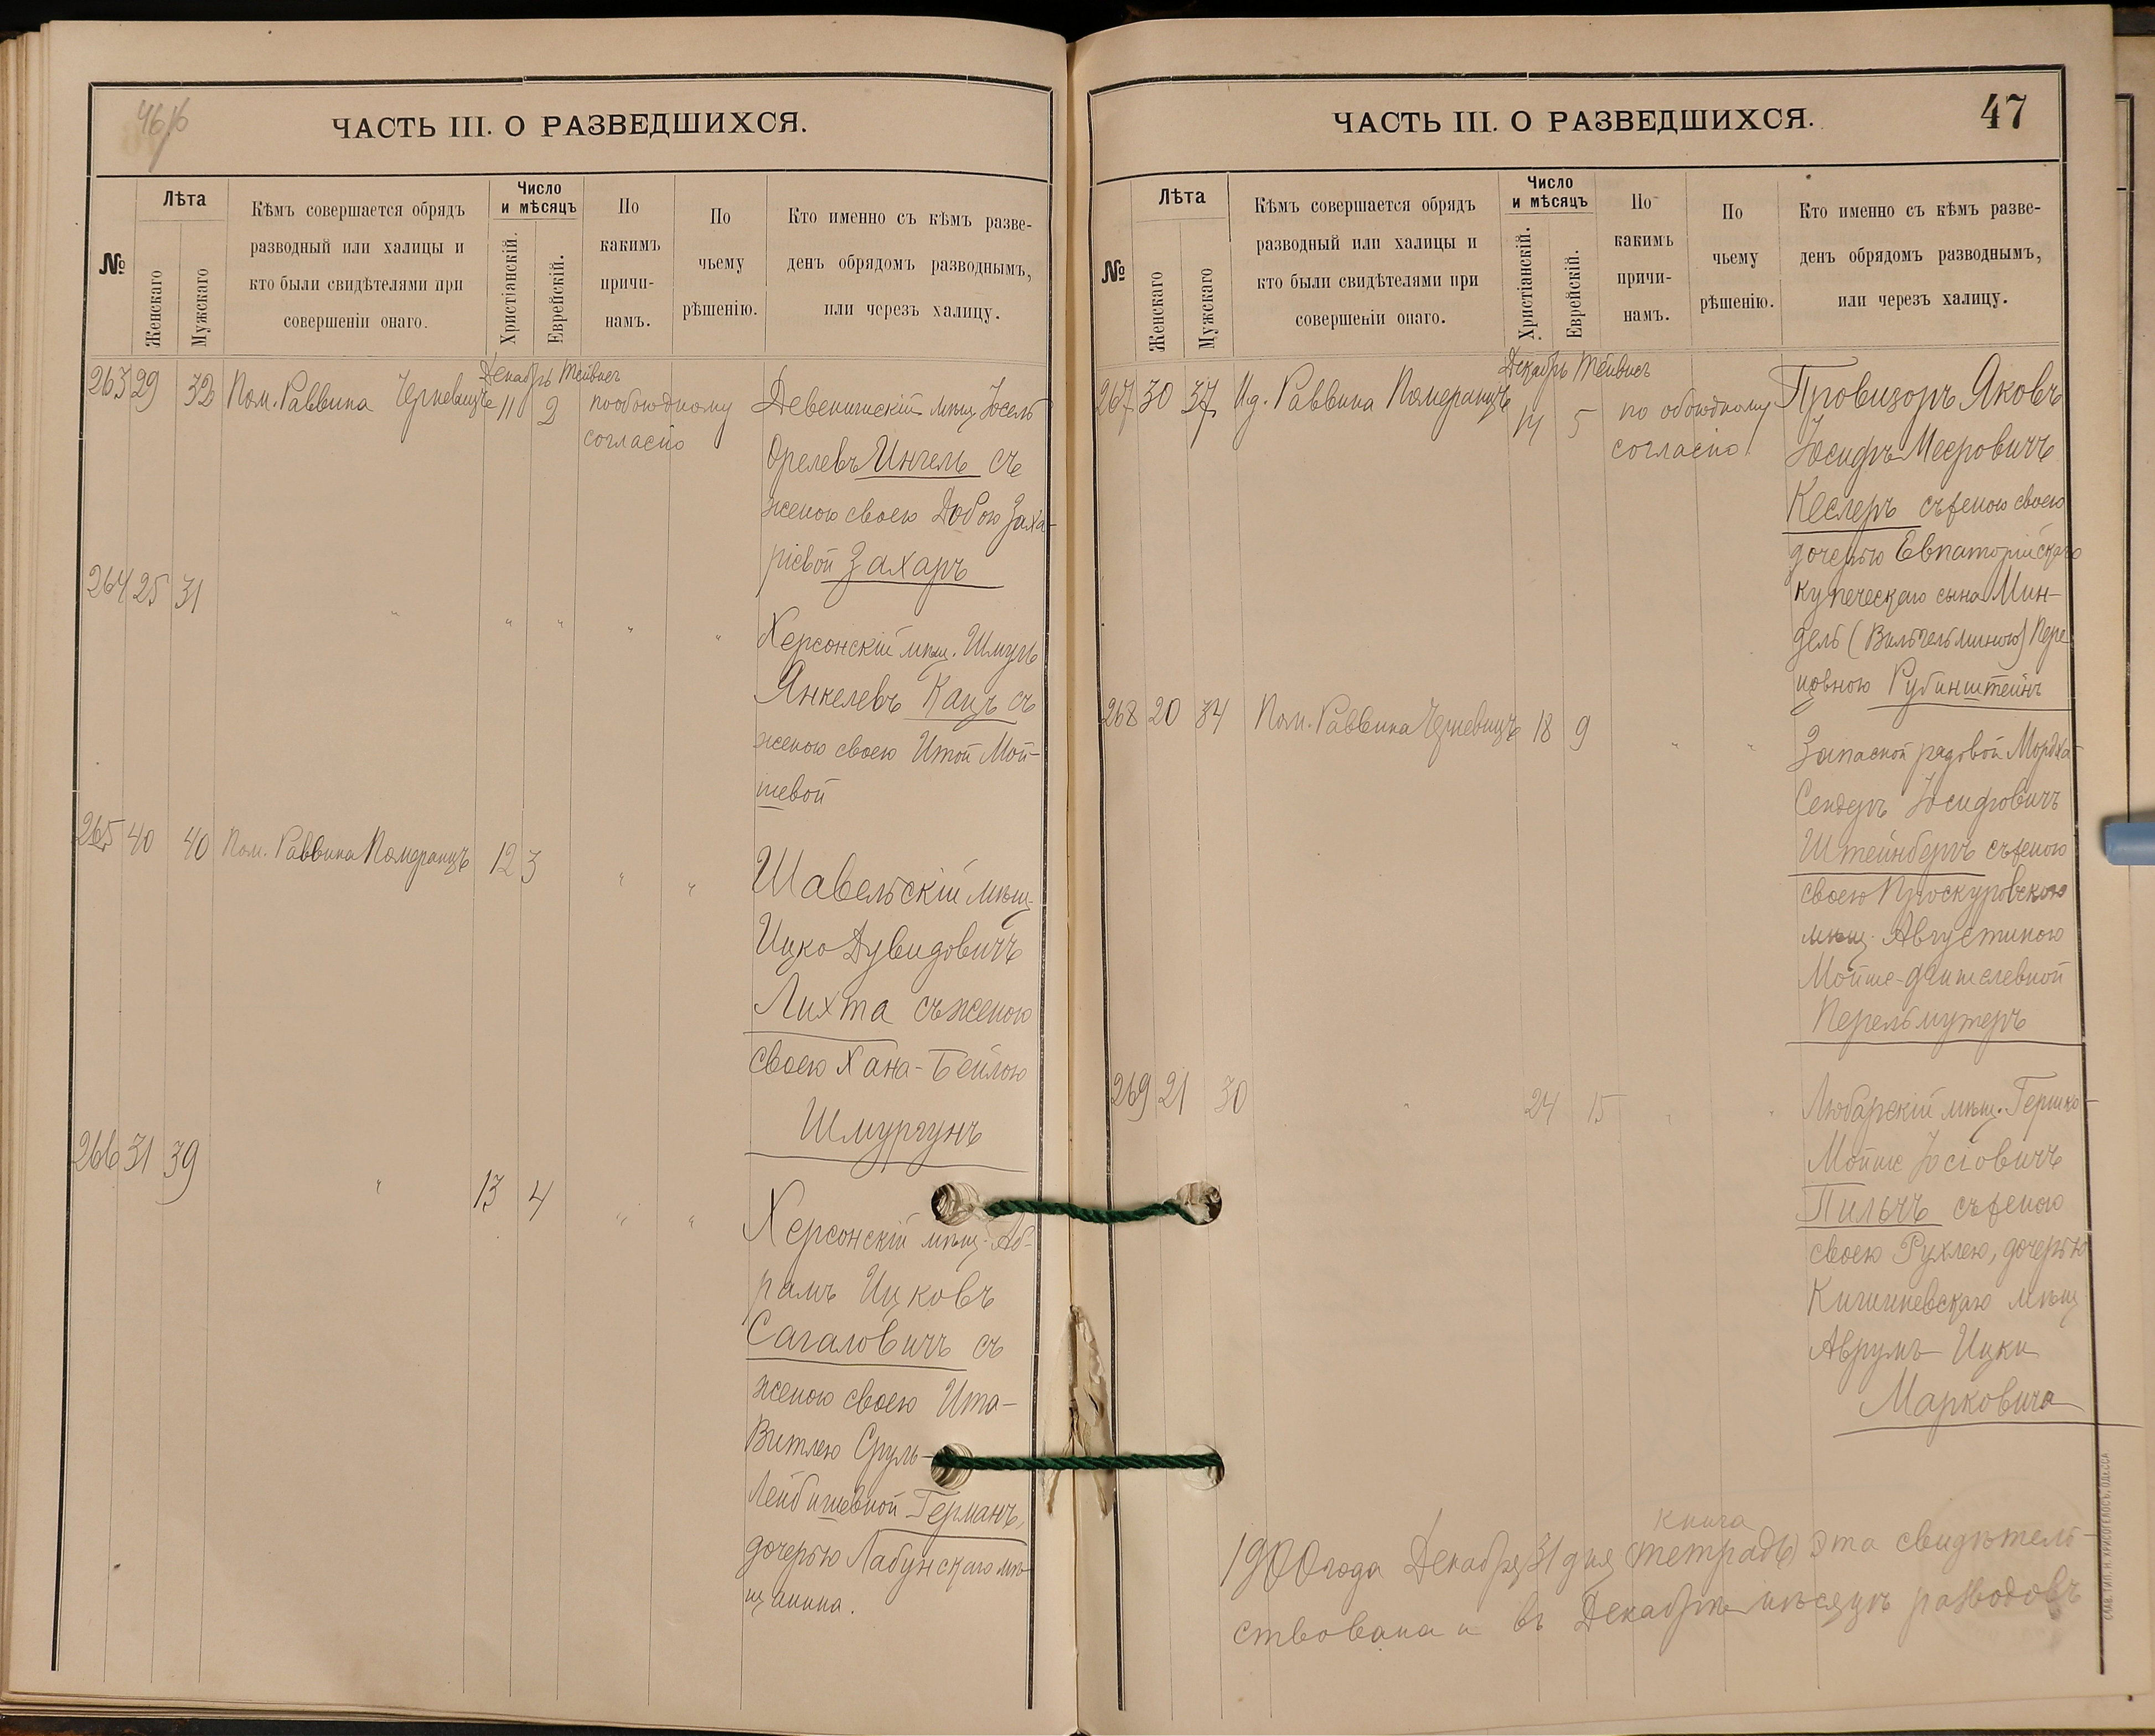 46
ЧАСТЬ III. О РАЗВЕДШИХСЯ.
№
Лѣта
Женскаго
Мужскаго
Кѣмъ совершается обрядъ
разводный или халицы и
кто были свидѣтелями при
совершеніи онаго.
Число
и мѣсяцъ
Христіанскій.
Еврейскій.
По
какимъ
причи-
намъ.
По
чьему
рѣшенію.
Кто именно съ кѣмъ разве-
денъ обрядомъ разводнымъ,
или черезъ халицу.
Декабрь Тейвисъ
263 29 32 Пом. Раввина Черневицъ 11 2 по обоюдному
согласію
Девенишскій мѣщ. Іосель
Орелевъ Ингель съ
женою своею Добою Заха-
ріевой Захаръ
264 25 31 " " " " "
Херсонскій мѣщ. Шмуль
Янкелевъ Кацъ съ
женою своею Итой Мой-
шевой
265 40 40 Пом. Раввина Померанцъ 12 3 " "
Шавельскій мѣщ.
Ицко Дувидовичъ
Лихта съ женою
своею Хана-Бейлою
Шмургунъ
266 31 39 " 13 4 " "
Херсонскій мѣщ. Аб-
рамъ Ицковъ
Сагаловичъ съ
женою своею Ита-
Витлею Сруль-
Лейбишевной Германъ,
дочерью Лабунскаго мѣ-
щанина.
ЧАСТЬ III. О РАЗВЕДШИХСЯ.
47
№
Лѣта
Женскаго
Мужскаго
Кѣмъ совершается обрядъ
разводный или халицы и
кто были свидѣтелями при
совершеніи онаго.
Число
и мѣсяцъ
Христіанскій.
Еврейскій.
По
какимъ
причи-
намъ.
По
чьему
рѣшенію.
Кто именно съ кѣмъ разве-
денъ обрядомъ разводнымъ,
или черезъ халицу.
Декабрь Тейвисъ
267 30 37 И. д. Раввина Померанцъ 14 5 по обоюдному
согласію
Провизоръ Яковъ
Іосифъ Мееровичъ
Кеслеръ съ женою своею
дочерью Евпаторійскаго
купеческаго сына Мин-
дель (Вильгельминою) Пере-
цовною Рубинштейнъ
268 20 34 Пом. Раввина Черневицъ 18 9 " "
Запасной рядовой Мордха
Сендеръ Іосифовичъ
Штейнбергъ съ женою
своею Проскуровскою
мѣщ. Августиною
Мойше-Фишелевной
Перельмутеръ
269 21 30 " 24 15 " "
Любарскій мѣщ. Гершко-
Мойше Іосіовичъ
Пильчъ съ женою
своею Рухлею, дочерью
Кишиневскаго мѣщ.
Аврумъ Ицки
Марковича
книга
1900 года Декабря 31 дня (тетрадь) эта свидѣтель-
ствована и въ Декабрѣ мѣсяцѣ разводовъ
СЛАВ. ТИП. Н. ХРИСОГЕЛОСЪ, ОДЕССА